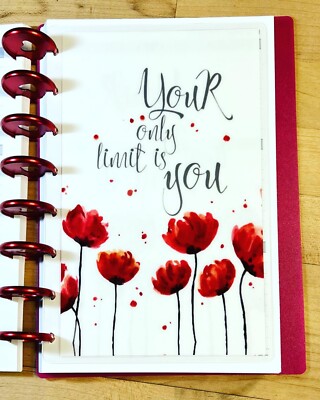 YouR
only
limit is
you